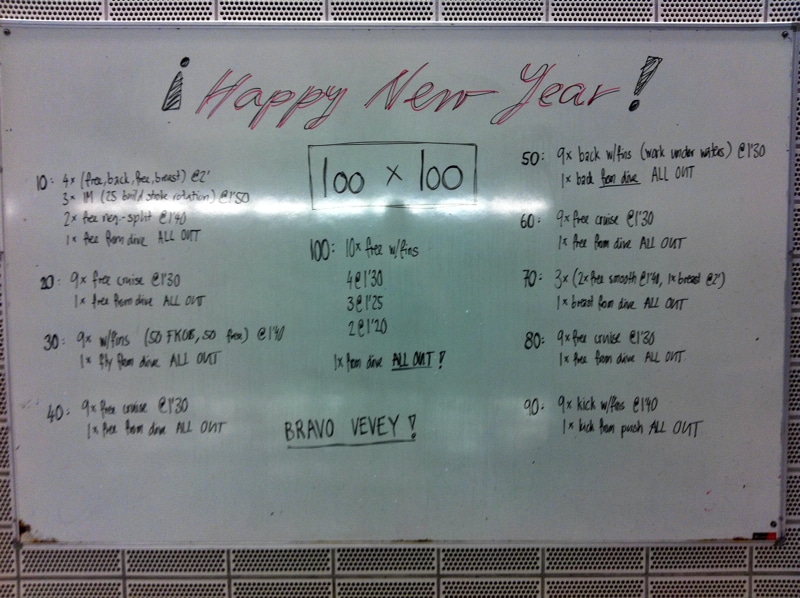 ¡ Happy New Year !
100 x 100
10: 4x (free, back, free, breast) @2'
3x IM (25 build stroke rotation) @1'50
2x free neg.-split @1'40
1x free from dive ALL OUT
20: 9x free cruise @1'30
1x free from dive ALL OUT
30: 9x w/fins (50 FKOB, 50 free) @1'40
1x fly from dive ALL OUT
40: 9x free cruise @1'30
1x free from dive ALL OUT
100: 10x free w/fins
4@1'30
3@1'25
2@1'20
1x from dive ALL OUT !
BRAVO VEVEY !
50: 9x back w/fins (work under waters) @1'30
1x back from dive ALL OUT
60: 9x free cruise @1'30
1x free from dive ALL OUT
70: 3x (2x free smooth @1'40, 1x breast @2')
1x breast from dive ALL OUT
80: 9x free cruise @1'30
1x free from dive ALL OUT
90: 9x kick w/fins @1'40
1x kick from push ALL OUT